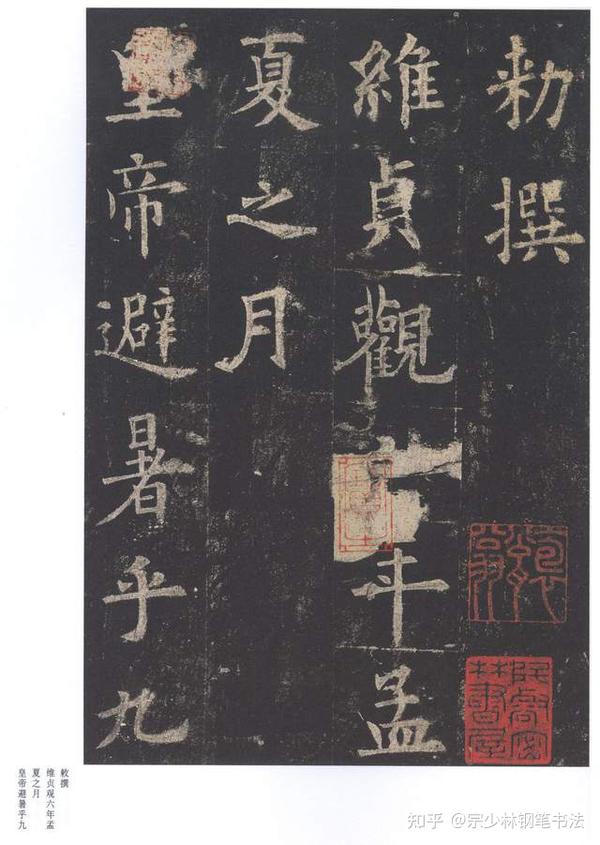 勑撰
維貞觀六年孟
夏之月
皇帝避暑乎九
敕撰
维贞观六年孟
夏之月
皇帝避暑乎九
知乎 @宗少林钢笔书法